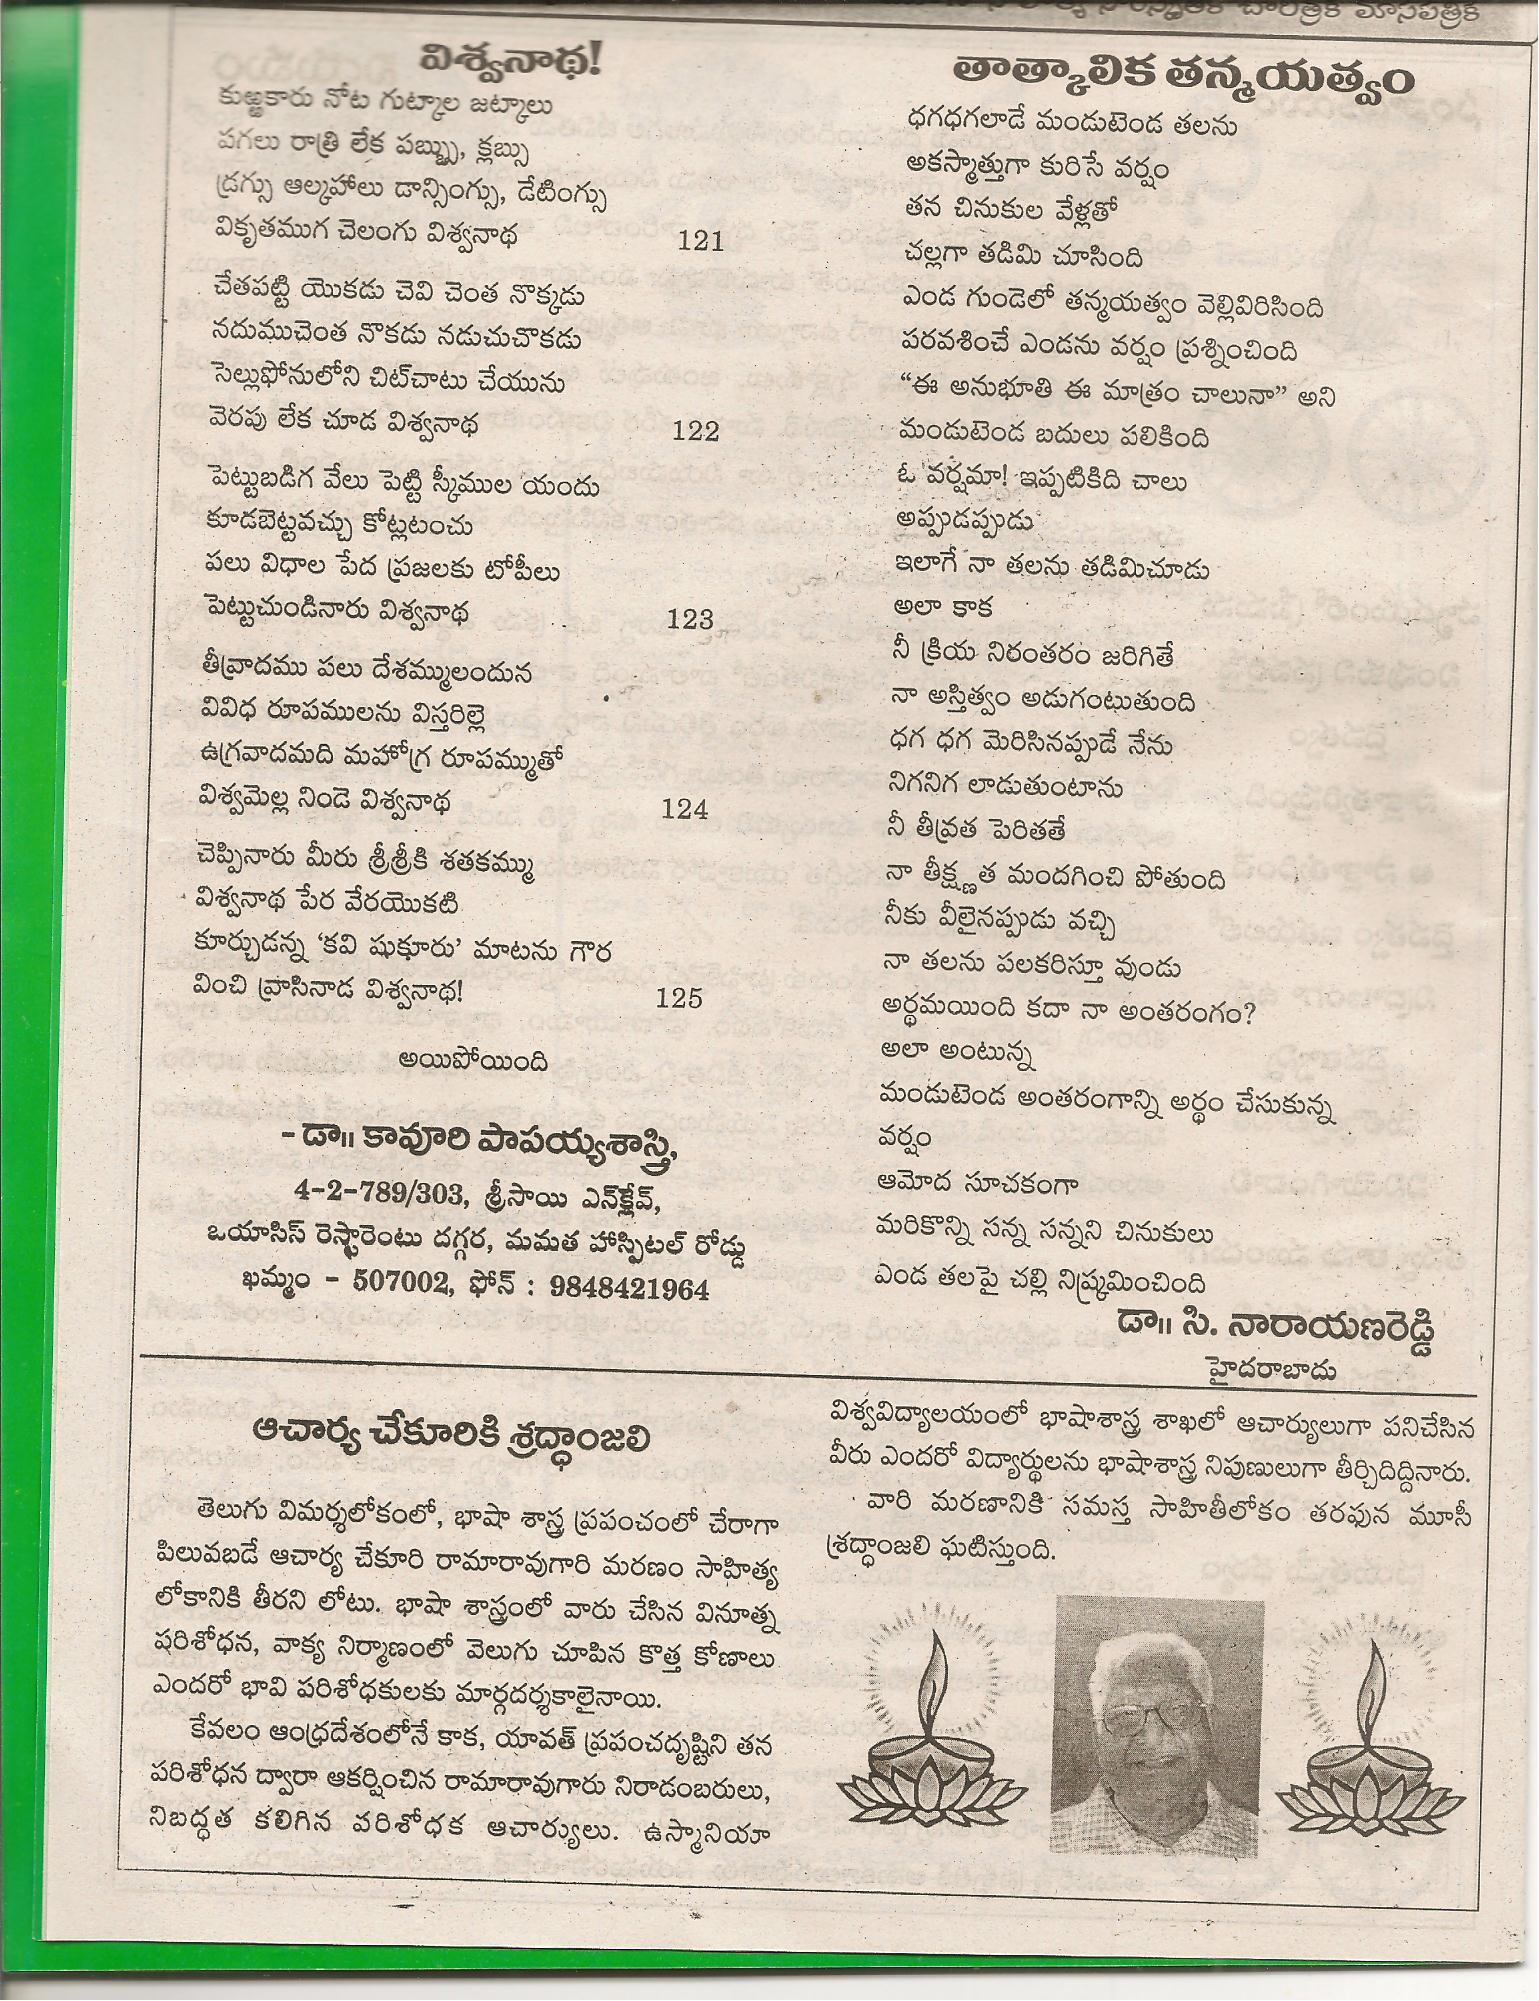 చారిత్రక మాసపత్రిక
విశ్వనాథ!
కుఱ్ఱకారు నోట గుట్కాల జట్కాలు
పగలు రాత్రి లేక పబ్బు, క్లబ్సు
డ్రగ్సు ఆల్కహాలు డాన్సింగ్సు, డేటింగ్సు
వికృతముగ చెలంగు విశ్వనాథ 121
చేతపట్టి యొకడు చెవి చెంత నొక్కడు
నదుముచెంత నొకడు నడుచుచొకడు
సెల్లుఫోనులోని చిట్‌చాటు చేయును
వెరపు లేక చూడ విశ్వనాథ 122
పెట్టుబడిగ వేలు పెట్టి స్కీముల యందు
కూడబెట్టవచ్చు కోట్లటంచు
పలు విధాల పేద ప్రజలకు టోపీలు
పెట్టుచుండినారు విశ్వనాథ 123
తీవ్రాదము పలు దేశమ్ములందున
వివిధ రూపములను విస్తరిల్లె
ఉగ్రవాదమది మహోగ్ర రూపమ్ముతో
విశ్వమెల్ల నిండె విశ్వనాథ 124
చెప్పినారు మీరు శ్రీశ్రీకి శతకమ్ము
విశ్వనాథ పేర వేరయొకటి
కూర్చుడన్న ‘కవి షుకూరు’ మాటను గౌర
వించి వ్రాసినాడ విశ్వనాథ! 125
అయిపోయింది
- డా॥ కావూరి పాపయ్యశాస్త్రి,
4-2-789/303, శ్రీసాయి ఎన్‌క్లేవ్,
ఒయాసిస్ రెస్టారెంటు దగ్గర, మమత హాస్పిటల్ రోడ్డు
ఖమ్మం - 507002, ఫోన్ : 9848421964
తాత్కాలిక తన్మయత్వం
ధగధగలాడే మండుటెండ తలను
అకస్మాత్తుగా కురిసే వర్షం
తన చినుకుల వేళ్లతో
చల్లగా తడిమి చూసింది
ఎండ గుండెలో తన్మయత్వం వెల్లివిరిసింది
పరవశించే ఎండను వర్షం ప్రశ్నించింది
“ఈ అనుభూతి ఈ మాత్రం చాలునా” అని
మండుటెండ బదులు పలికింది
ఓ వర్షమా! ఇప్పటికిది చాలు
అప్పుడప్పుడు
ఇలాగే నా తలను తడిమిచూడు
అలా కాక
నీ క్రియ నిరంతరం జరిగితే
నా అస్తిత్వం అడుగంటుతుంది
ధగ ధగ మెరిసినప్పుడే నేను
నిగనిగ లాడుతుంటాను
నీ తీవ్రత పెరితతే
నా తీక్ష్ణత మందగించి పోతుంది
నీకు వీలైనప్పుడు వచ్చి
నా తలను పలకరిస్తూ వుండు
అర్థమయింది కదా నా అంతరంగం?
అలా అంటున్న
మండుటెండ అంతరంగాన్ని అర్థం చేసుకున్న
వర్షం
ఆమోద సూచకంగా
మరికొన్ని సన్న సన్నని చినుకులు
ఎండ తలపై చల్లి నిష్క్రమించింది
డా॥ సి. నారాయణరెడ్డి
హైదరాబాదు
ఆచార్య చేకూరికి శ్రద్ధాంజలి
తెలుగు విమర్శలోకంలో, భాషా శాస్త్ర ప్రపంచంలో చేరాగా
పిలువబడే ఆచార్య చేకూరి రామారావుగారి మరణం సాహిత్య
లోకానికి తీరని లోటు. భాషా శాస్త్రంలో వారు చేసిన వినూత్న
షరిశోధన, వాక్య నిర్మాణంలో వెలుగు చూపిన కొత్త కోణాలు
ఎందరో భావి పరిశోధకులకు మార్గదర్శకాలైనాయి.
కేవలం ఆంధ్రదేశంలోనే కాక, యావత్ ప్రపంచదృష్టిని తన
పరిశోధన ద్వారా ఆకర్షించిన రామారావుగారు నిరాడంబరులు,
నిబద్ధత కలిగిన పరిశోధక ఆచార్యులు. ఉస్మానియా
విశ్వవిద్యాలయంలో భాషాశాస్త్ర శాఖలో ఆచార్యులుగా పనిచేసిన
వీరు ఎందరో విద్యార్థులను భాషాశాస్త్ర నిపుణులుగా తీర్చిదిద్దినారు.
వారి మరణానికి సమస్త సాహితీలోకం తరఫున మూసీ
శ్రద్ధాంజలి ఘటిస్తుంది.